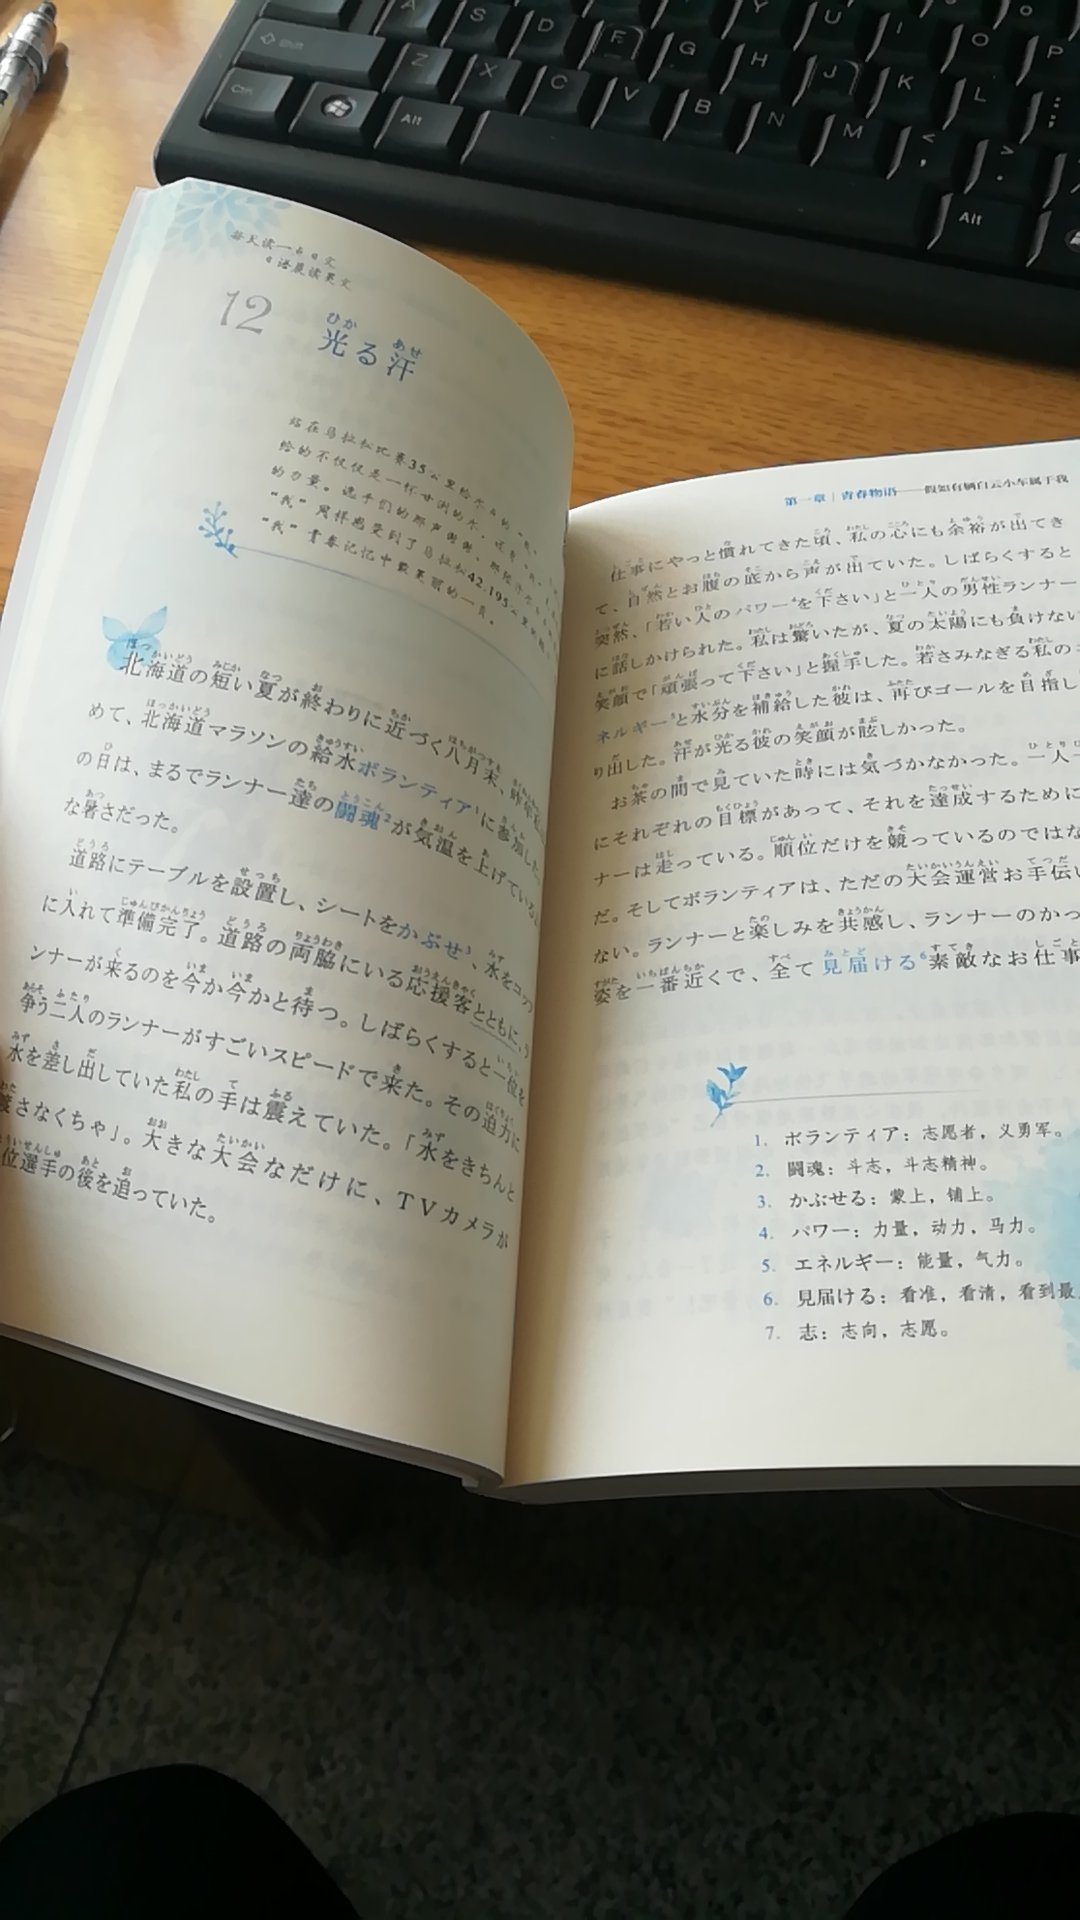 每天读一点日文
日语晨读美文
12
光る汗
站在马拉松比赛35公里给水点的"我"
给的不仅仅是一杯甘冽的水，还有
的力量。选手们的那声谢谢、那
"我"同样感受到了马拉松42.195公里的
"我"青春记忆中最美丽的一页。
北海道の短い夏が終わりに近づく八月末、昨年
めて、北海道マラソンの給水ボランティア1に参加した。
の日は、まるでランナー達の闘魂2が気温を上げている
な暑さだった。
道路にテーブルを設置し、シートをかぶせ3、水をコップ
に入れて準備完了。道路の両脇にいる応援客とともに、ラ
ンナーが来るのを今か今かと待つ。しばらくすると一位を
争う二人のランナーがすごいスピードで来た。その迫力に
水を差し出していた私の手は震えていた。「水をきちんと
渡さなくちゃ」。大きな大会なだけに、TVカメラが
位選手の後を追っていた。
第一章｜青春物语——假如有辆白云小车属于我
仕事にやっと慣れてきた頃、私の心にも余裕が出てき
て、自然とお腹の底から声が出ていた。しばらくすると
突然、「若い人のパワー4を下さい」と一人の男性ランナー
に話しかけられた。私は驚いたが、夏の太陽にも負けない
笑顔で「頑張って下さい」と握手した。若さみなぎる私の
ネルギー5と水分を補給した彼は、再びゴールを目指し
り出した。汗が光る彼の笑顔が眩しかった。
お茶の間で見ていた時には気づかなかった。一人一
にそれぞれの目標があって、それを達成するために
ナーは走っている。順位だけを競っているのではな
だ。そしてボランティアは、ただの大会運営お手伝い
ない。ランナーと楽しみを共感し、ランナーのかっ
姿を一番近くで、全て見届ける6素敵なお仕事
1. ボランティア：志愿者，义勇军。
2. 闘魂：斗志，斗志精神。
3. かぶせる：蒙上，铺上。
4. パワー：力量，动力，马力。
5. エネルギー：能量，气力。
6. 見届ける：看准，看清，看到最
7. 志：志向，志愿。
A S D F G H J K L
Y U I O P
Shift Z X C V B N M < , > .
Ctrl Alt Alt